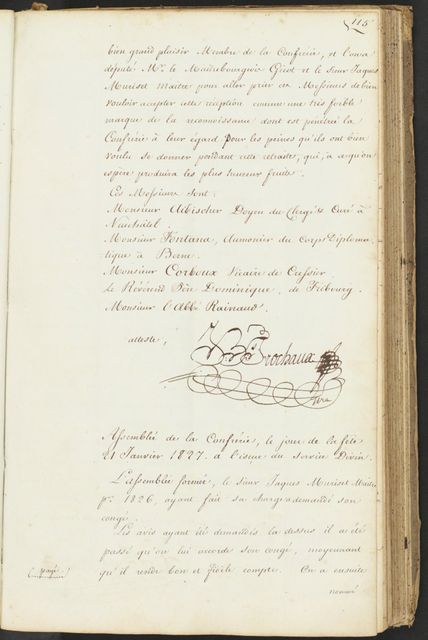 115
bien grand plaisir Membre de la Confrérie, et l'on a
député Mr. le Maitrebourgeois Girot et le Sieur Jaques
Muriset Maitre pour aller prier ces Messieurs de bien
vouloir accepter cette réception comme une très foible
marque de la reconnoissance dont est pénétrée la
Confrérie à leur égard pour les peines qu'ils ont bien
voulu se donner pendant cette retraite, qui, à ce qu'on
espère produira les plus heureux fruits.
Ces Messieurs sont.
Monsieur Aebischer Doyen du Clergé & Curé à
Neuchâtel.
Monsieur Fontana, Aumonier du Corps Diploma
tique à Berne.
Monsieur Corboux Vicaire de Cressier.
Le Révérend Père Dominique, de Fribourg.
Monsieur l'Abbé Rainaud.
atteste,
Frochaux
Curé
Assemblée de la Confrérie, le jour de la fête
21 Janvier 1827. à l'issue du Service Divin.
L'assemblée formée, le Sieur Jaques Muriset Maitre
pr. 1826, ayant fait sa charge a demandé son
congé.
Les avis ayant été demandés là dessus il a été
passé qu'on lui accorde son congé, moyennant
qu'il rende bon et fidèle compte. On a ensuite
nommé